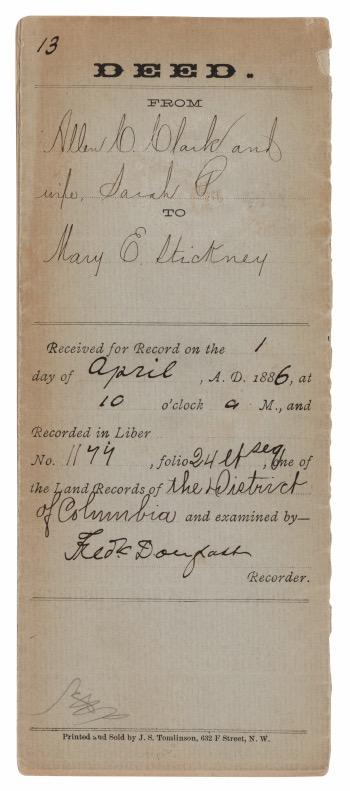 13
DEED.
FROM
Allen C. Clark and
wife, Sarah P
TO
Mary E. Stickney
Received for Record on the 1
day of April , A. D. 1886, at
10 o'clock a M., and
Recorded in Liber
No. 1177 , folio 24 et seq , one of
the Land Records of the District
of Columbia and examined by—
Fredk Douglass
Recorder.
Printed and Sold by J. S. Tomlinson, 632 F Street, N. W.